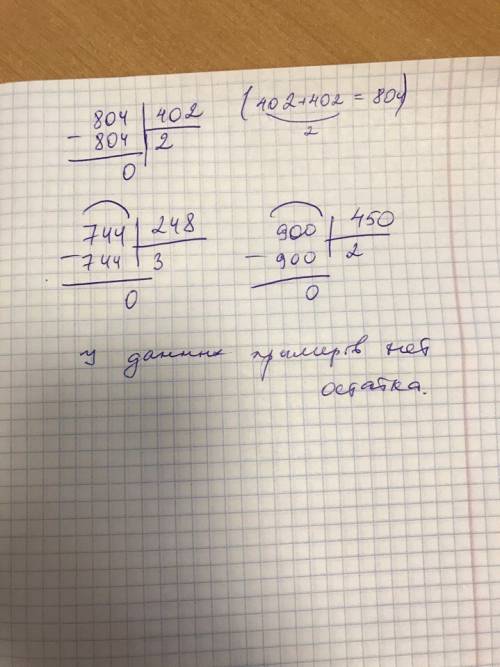 804 402 (402+402 = 804)
- 804 2 2
0
744 248 900 450
- 744 3 - 900 2
0 0
У данных примеров нет
остатка.